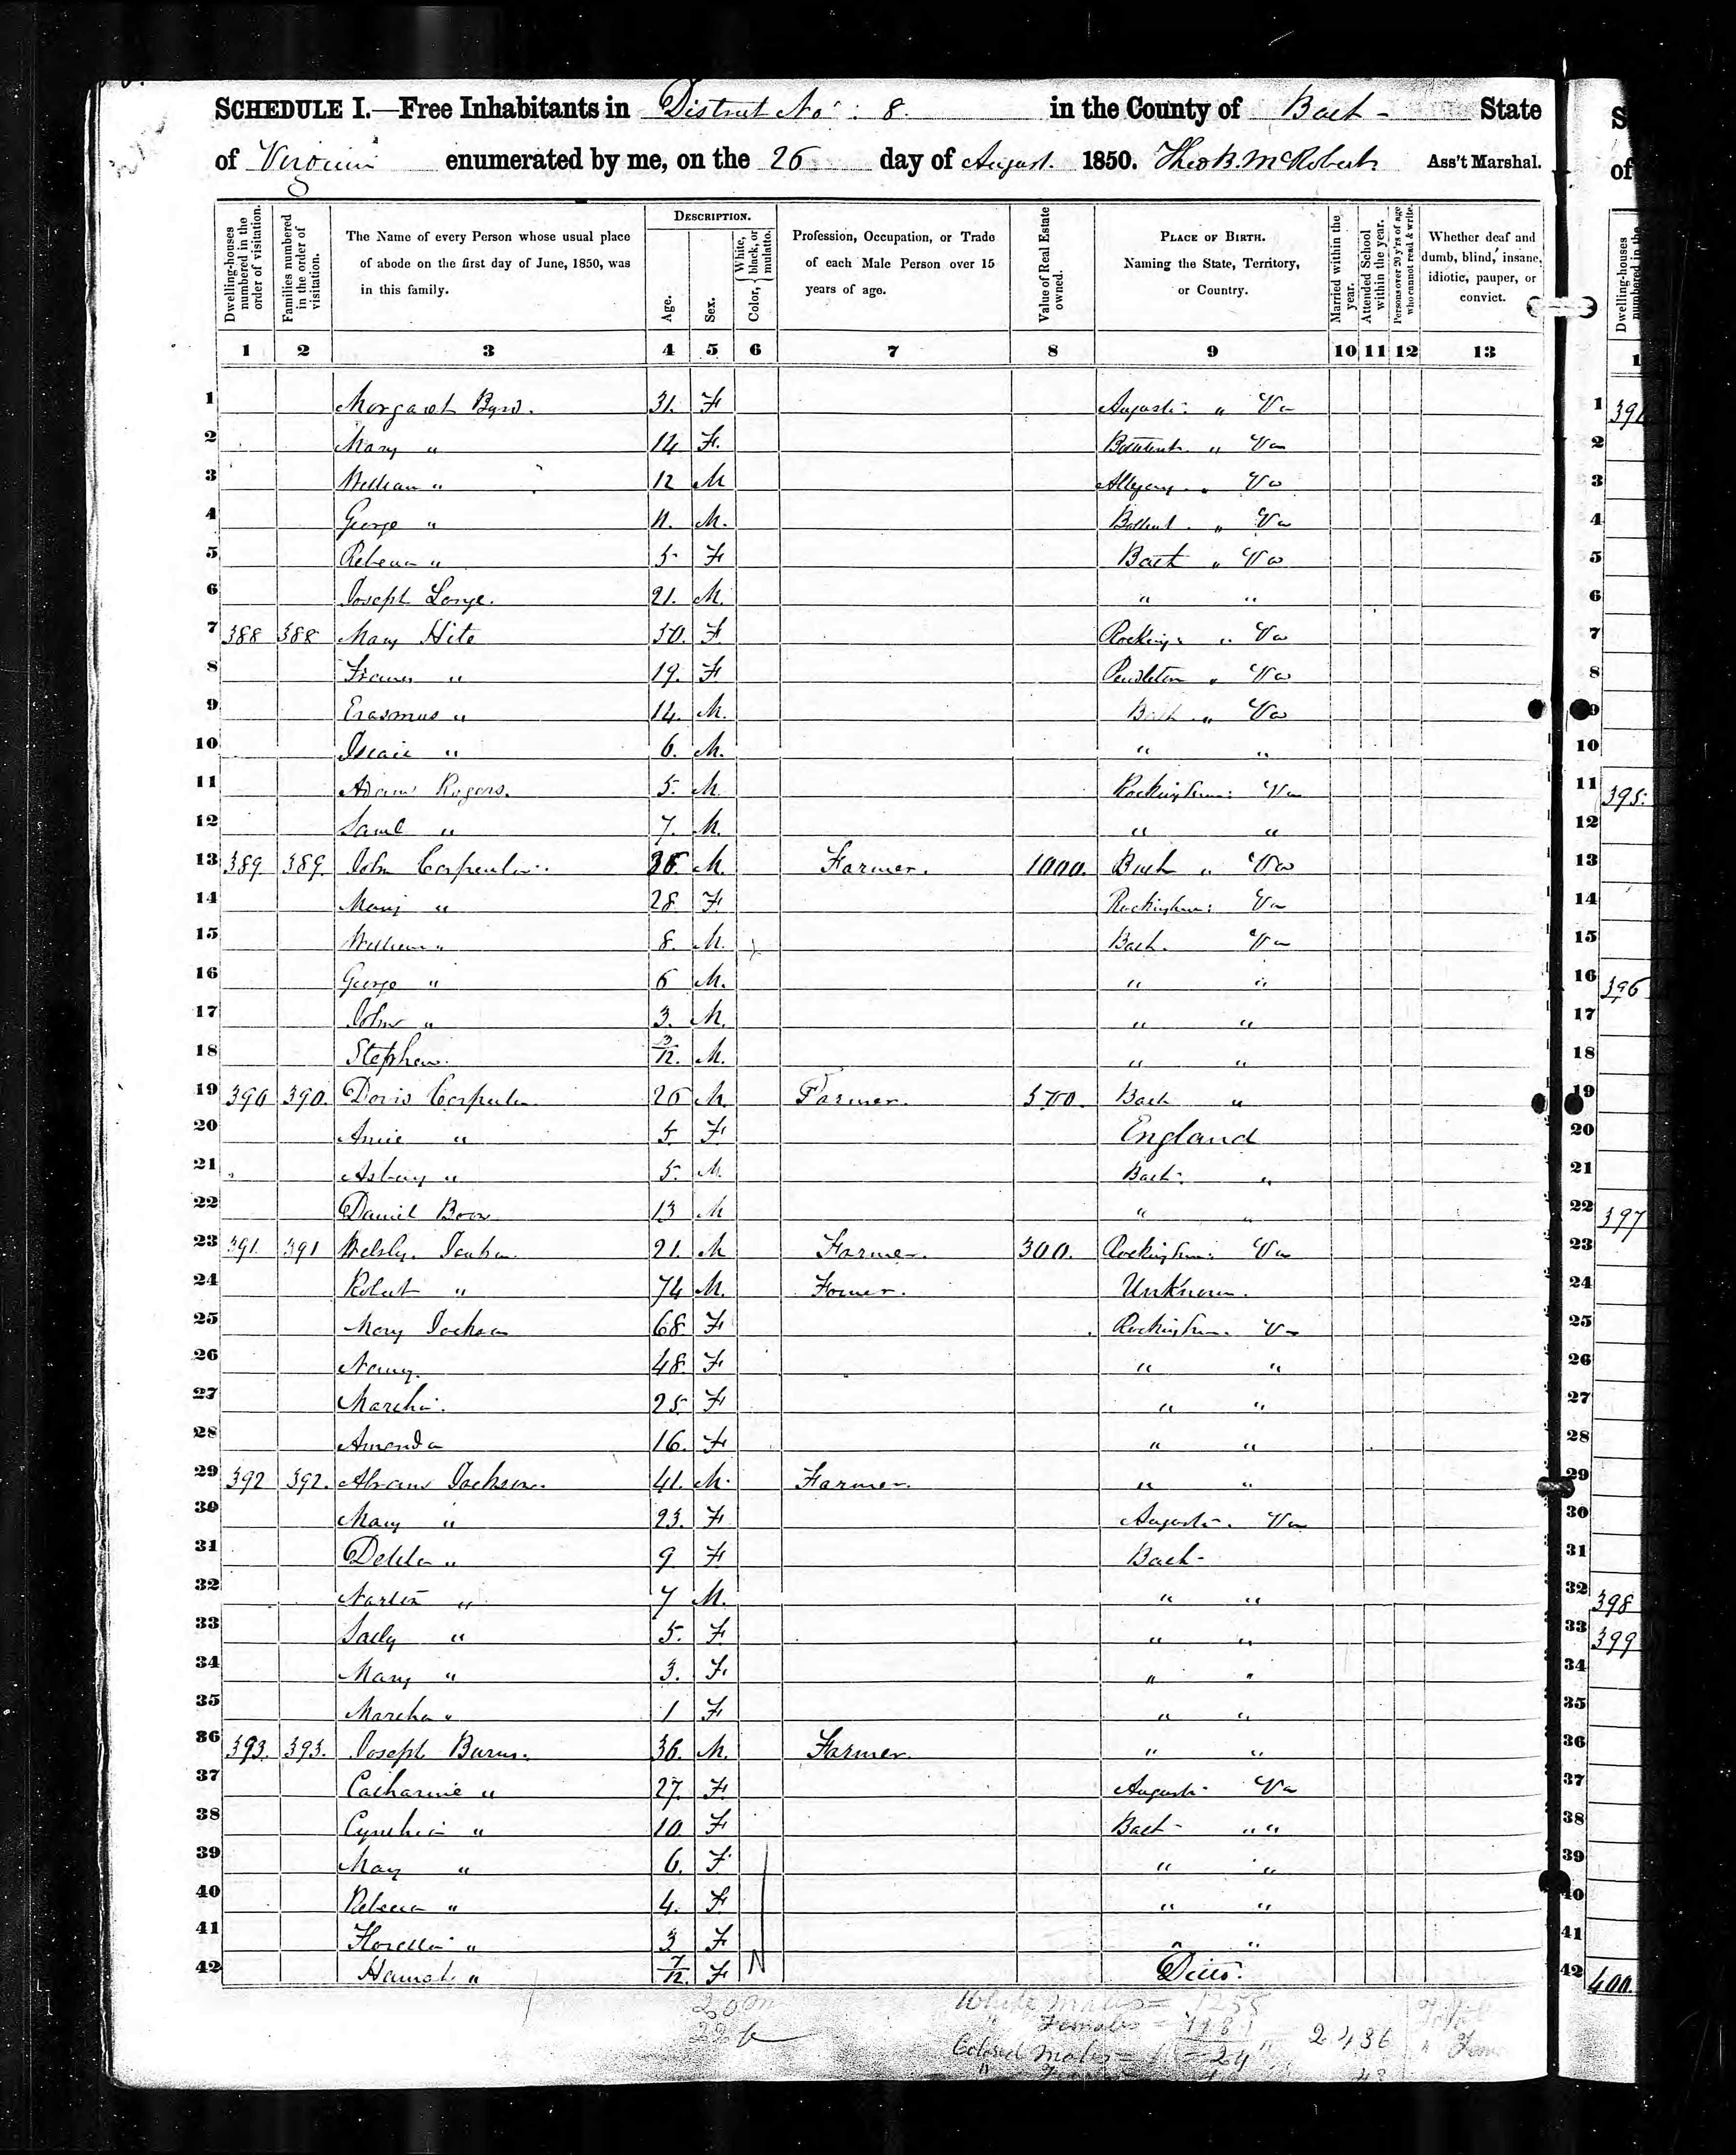 SCHEDULE I.—Free Inhabitants in District No. 8. in the County of Bath - State
of Virginia enumerated by me, on the 26 day of August. 1850. Theo B. McRoberts Ass't Marshal.
Dwelling-houses numbered in the order of visitation.
Families numbered in the order of visitation.
The Name of every Person whose usual place of abode on the first day of June, 1850, was in this family.
DESCRIPTION.
Age.
Sex.
Color, { White, black, or mulatto.
Profession, Occupation, or Trade of each Male Person over 15 years of age.
Value of Real Estate owned.
PLACE OF BIRTH. Naming the State, Territory, or Country.
Married within the year.
Attended School within the year.
Persons over 20 y'rs of age who cannot read & write.
Whether deaf and dumb, blind, insane, idiotic, pauper, or convict.
1 2 3 4 5 6 7 8 9 10 11 12 13
1 Margaret Byrd. 31. F Augusta " Va
2 Mary " 14 F. " Va
3 William " 12 M Allegany " Va
4 George " 11. M. " Va
5 Rebecca " 5 F Bath " Va
6 Joseph Longe. 21. M. " "
7 388 388 Mary Hite 50. F Rocking: " Va
8 Frances " 19. F Pendleton " Va
9 Erasmus " 14. M. Bath " Va
10 Isaic " 6. M. " "
11 Adam Rogers. 5. M. Rockingham: Va
12 Saml " 7. M. " "
13 389. 389. John Carpenter. M. Farmer. 1000. Bath " Va
14 Mary " 28 F. Rockingham: Va
15 William " 8. M. Bath. Va
16 George " 6 M. " "
17 John " 3. M. " "
18 Stephen. 3/12. M. " "
19 390 390. Davis Carpenter 26 M. Farmer. 500. Bath "
20 Amie " F England
21 Asbury " 5. M. Bath. "
22 Daniel Boon 13 M " "
23 391. 391 21. M Farmer. 300. Rockingham: Va
24 Robert " 74 M. Farmer. Unknown.
25 Mary Jackson 68 F Rockingham. Va
26 Nancy. 48. F " "
27 Martha. 25. F " "
28 Amanda 16. F " "
29 392 392. Abram Jackson. 41. M. Farmer. " "
30 Mary " 23. F Augusta. Va
31 Delila " 9 F Bath -
32 " 7 M. " "
33 Sally " 5. F " "
34 Mary " 3. F " "
35 Martha " 1 F " "
36 393. 393. Joseph Burns. 36. M. Farmer. " "
37 Catharine " 27. F. Augusta Va
38 Cynthia " 10. F Bath - " "
39 May " 6. F " "
40 Rebecca " 4. F " "
41 " 3 F " "
42 Hannah " 7/12. F Ditto.
20 m
22 f
White Males = 1255
" Females = 1181 2436
Colored Males = 24
395.
396
397
398
399
400.